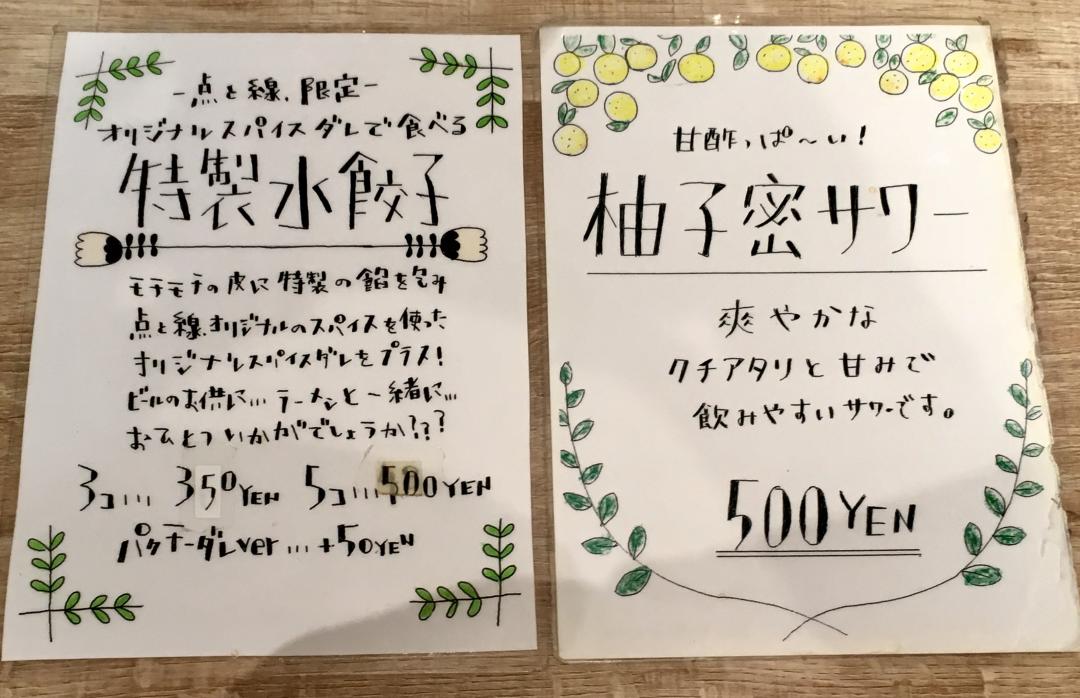 -点と線.限定-
オリジナルスパイスダレで食べる
特製水餃子
モチモチの皮に特製の餡を包み
点と線.オリジナルのスパイスを使った
オリジナルスパイスダレをプラス!
ビールのお供に… ラーメンと一緒に…
おひとついかがでしょうか!?!?
3コ… 350YEN 5コ…500YEN
パクチーダレver…+50YEN
甘酢っぱ〜い!
柚子密サワー
爽やかな
クチアタリと甘みで
飲みやすいサワーです。
500YEN